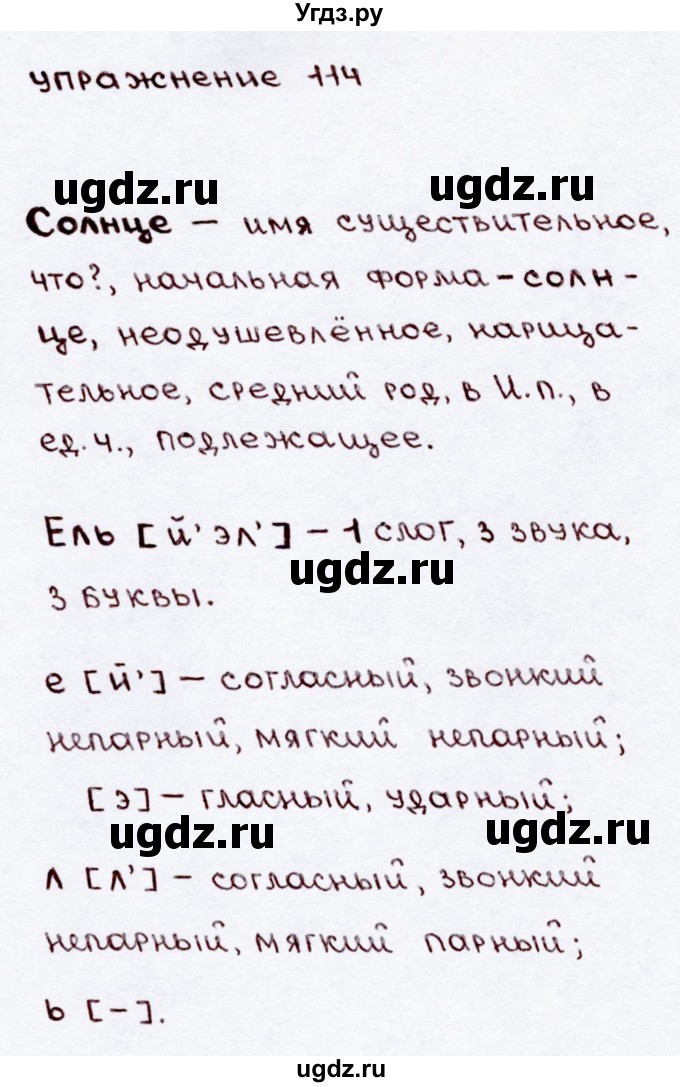 Угдз.ру
упражнение 114
ugdz.ru ugdz.ru
Солнце – имя существительное,
что?, начальная форма – солн-
це, неодушевлённое, нарица-
тельное, средний род, в И.п., в
ед.ч., подлежащее.
Ель [й’эл’] – 1 слог, 3 звука,
ugdz.ru
3 буквы.
е [й’] – согласный, звонкий
непарный, мягкий непарный;
[э] – гласный, ударный;
ugdz.ru ugdz.ru
л [л’] – согласный, звонкий
непарный, мягкий парный;
ь [–].
ugdz.ru